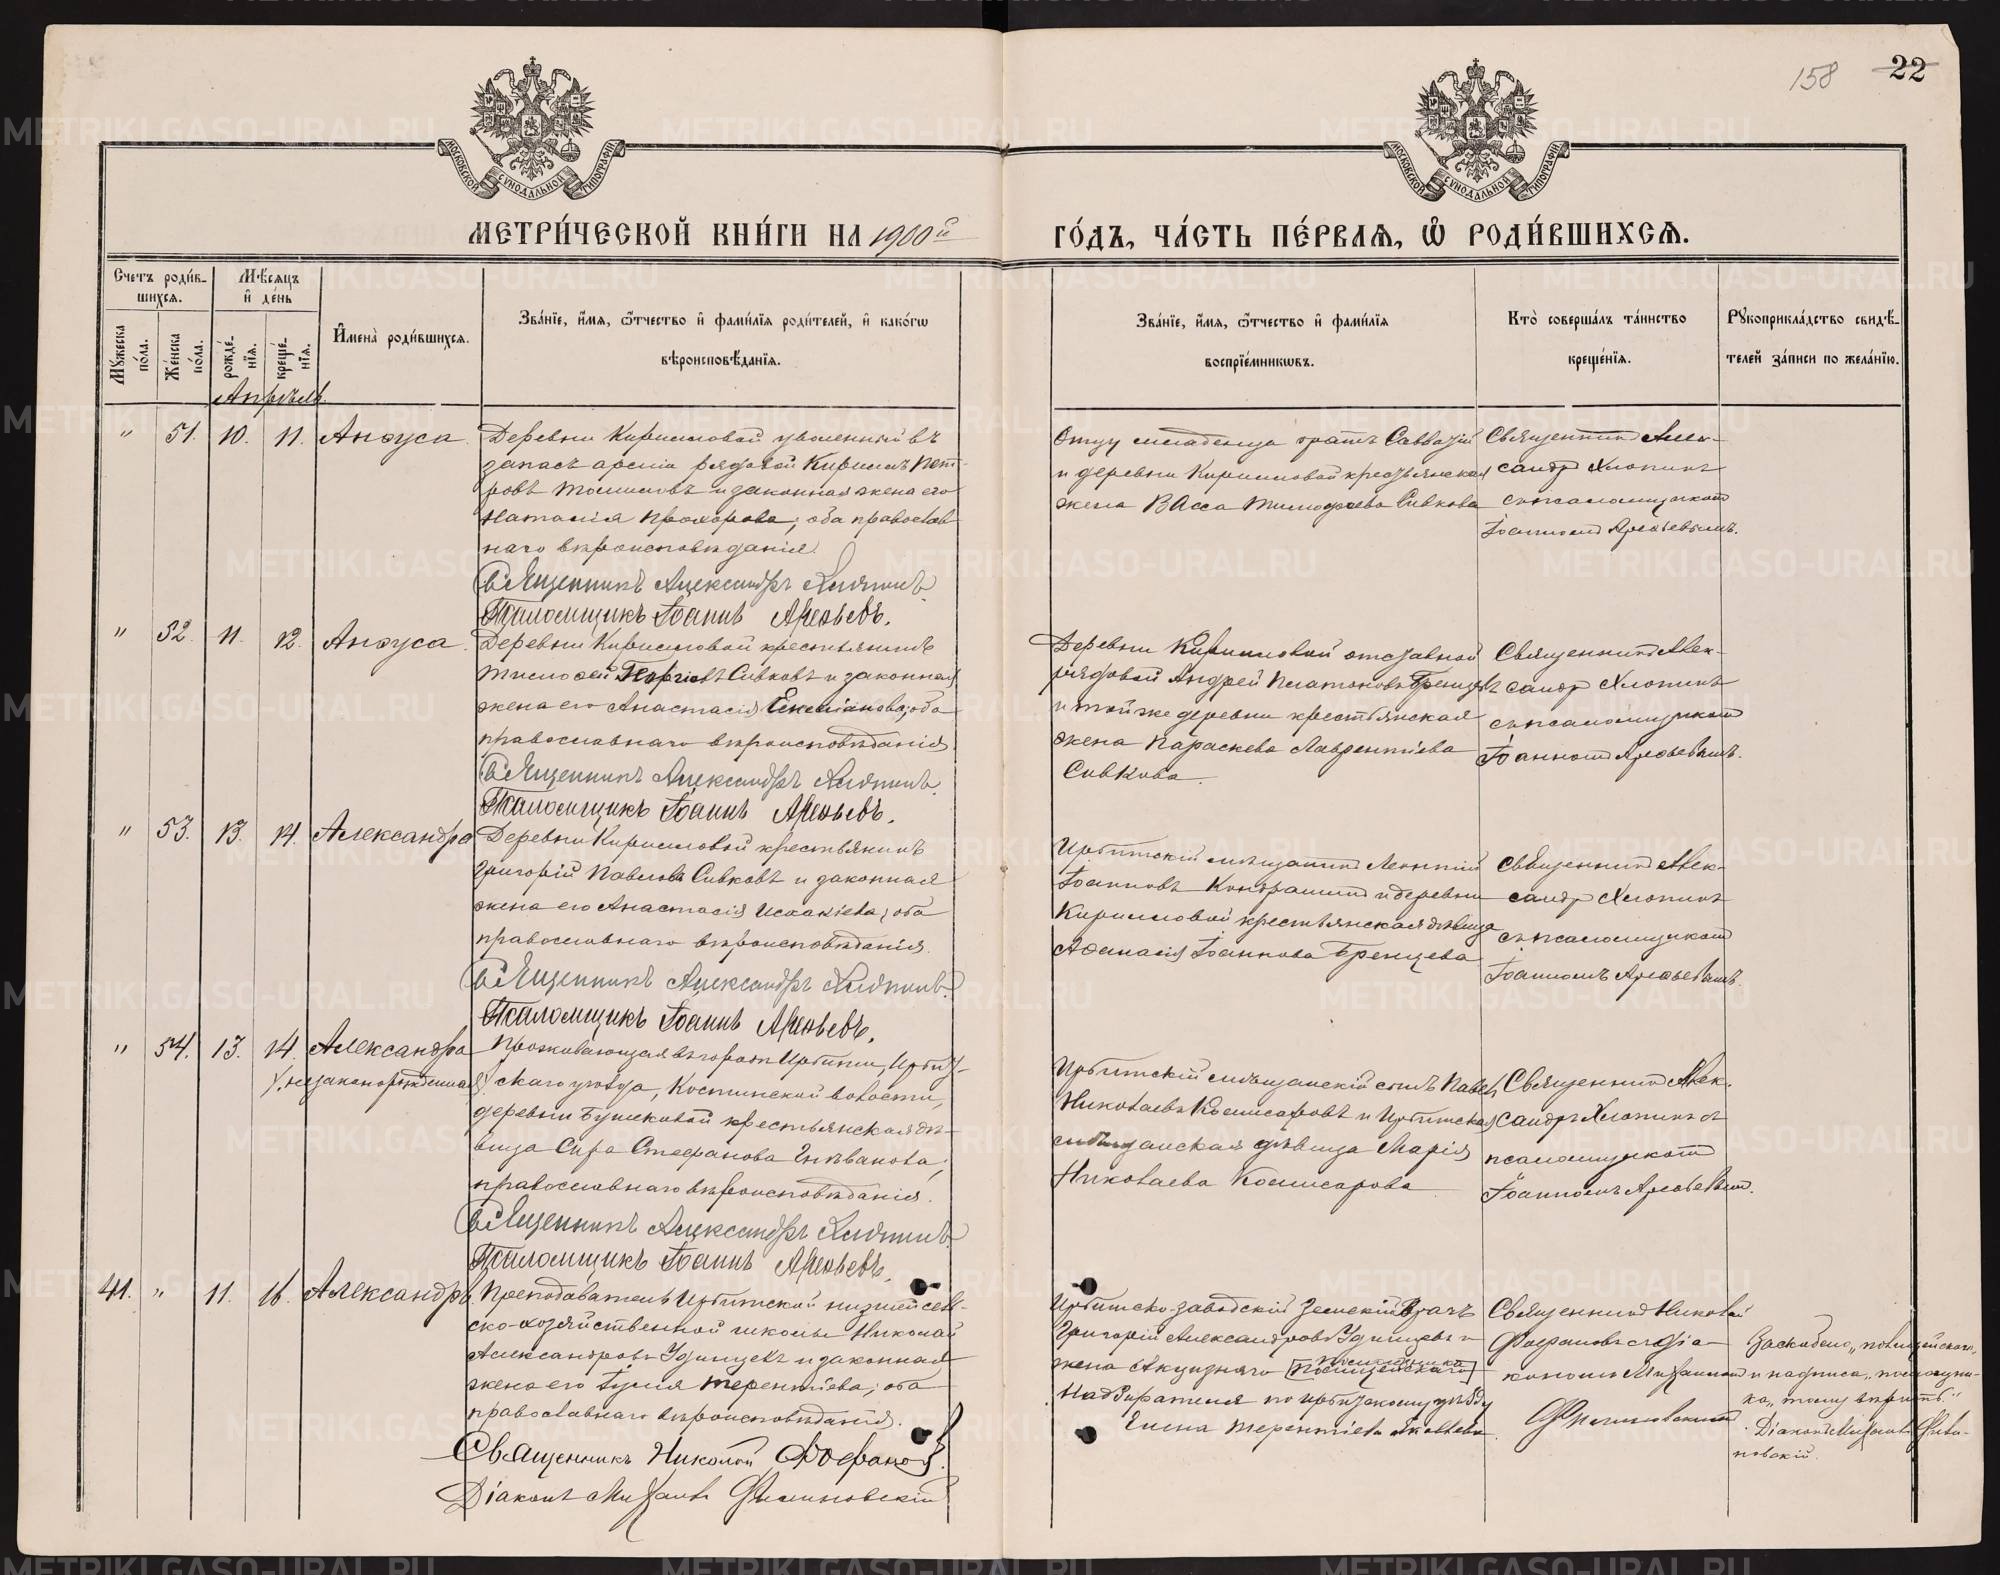 158 22
МОСКОВСКОЙ СѴНОДАЛЬНОЙ ТИПОГРАФІИ
МОСКОВСКОЙ СѴНОДАЛЬНОЙ ТИПОГРАФІИ
МЕТРИ́ЧЕСКОЙ КНИ́ГИ НА 1900й ГО́ДЪ, ЧА́СТЬ ПЕ́РВАЯ, Ѡ РОДИ́ВШИХСЯ.
Счетъ роди́в-
шихся.
Мѣсяцъ
и де́нь
Мꙋ́жеска по́ла.
Же́нска по́ла.
рожде́-
нїя.
креще́-
нїя.
Имена̀ роди́вшихся.
Зва́нїе, и́мя, ѻ́тчество и фами́лїя роди́телей, и како́гѡ
вѣроисповѣ́данїя.
Зва́нїе, и́мя, ѻ́тчество и фами́лїя
воспрїе́мникѡвъ.
Кто̀ соверша́лъ та́инство
креще́нїя.
Рꙋкоприкла́дство свидѣ́-
телей за́писи по жела́нїю.
Апрѣль.
" 51. 10. 11. Анѳуса.
Деревни Кирилловой уволенный въ
запасъ арміи рядовой Кириллъ Пет-
ровъ Томиловъ и законная жена его
Наталія Прохорова; оба православ
наго вѣроисповѣданія.
Священникъ Александръ Хлопинъ.
Псаломщикъ Іоаннъ Арефьевъ.
Отцу младенца братъ Савватій
и деревни Кирилловой крестьянская
жена Васса Тимофеева Сивкова
Священникъ Алек-
сандръ Хлопинъ
съ псаломщикомъ
Іоанномъ Арефьевымъ.
" 52. 11. 12. Анѳуса.
Деревни Кирилловой крестьянинъ
Тимофей Сивковъ и законная
жена его Анастасія Емеліанова; оба
православнаго вѣроисповѣданія
Священникъ Александръ Хлопинъ.
Псаломщикъ Іоаннъ Арефьевъ.
Деревни Кирилловой отставной
рядовой Андрей Платоновъ Бренцевъ
и той же деревни крестьянская
жена Параскева Лаврентіева
Сивкова.
Священникъ Алек-
сандръ Хлопинъ
съ псаломщикомъ
Іоанномъ Арефьевымъ.
" 53. 13. 14. Александра
Деревни Кирилловой крестьянинъ
Григорій Павловъ Сивковъ и законная
жена его Анастасія Исаакіева; оба
православнаго вѣроисповѣданія.
Священникъ Александръ Хлопинъ.
Псаломщикъ Іоаннъ Арефьевъ.
Ирбитскій мѣщанинъ Леонтій
Іоанновъ Кондрашинъ и деревни
Кирилловой крестьянская дѣвица
Аѳанасія Іоаннова Бренцева
Священникъ Алек-
сандръ Хлопинъ
съ псаломщикомъ
Іоанномъ Арефьевымъ.
" 54. 13. 14. Александра
(незаконорожденная)
Проживающая въ городѣ Ирбити, Ирбит-
скаго уѣзда, Костинской волости,
деревни Бушковой крестьянская дѣ-
вица Сира Стефанова Гнѣванова;
православнаго вѣроисповѣданія.
Священникъ Александръ Хлопинъ.
Псаломщикъ Іоаннъ Арефьевъ.
Ирбитскій мѣщанскій сынъ Павелъ
Николаевъ Комисаровъ и Ирбитская
мѣщанская дѣвица Марія
Николаева Комисарова
Священникъ Алек-
сандръ Хлопинъ съ
псаломщикомъ
Іоанномъ Арефьевымъ.
41. " 11. 16. Александръ.
Преподаватель Ирбитской низшей сель-
ско-хозяйственной школы Николай
Александровъ Удинцевъ и законная
жена его Іулія Терентіева; оба
православнаго вѣроисповѣданія.
Священникъ Николай Фофановъ.
Діаконъ Михаилъ Филиновскій
Ирбитско-заводскій Земскій Врачъ
Григорій Александровъ Удинцевъ и
жена Акцизнаго [полицейскаго] помощника
Надзирателя по Ирбитскому уѣзду
Елена Терентіева Яковлева.
Священникъ Николай
Фофановъ съ діа-
кономъ Михаиломъ
Филиновскимъ
Заскоблено „полицейскаго„
и надпись „помощни-
ка„ тому вѣрить".
Діаконъ Михаилъ Фили-
новскій.